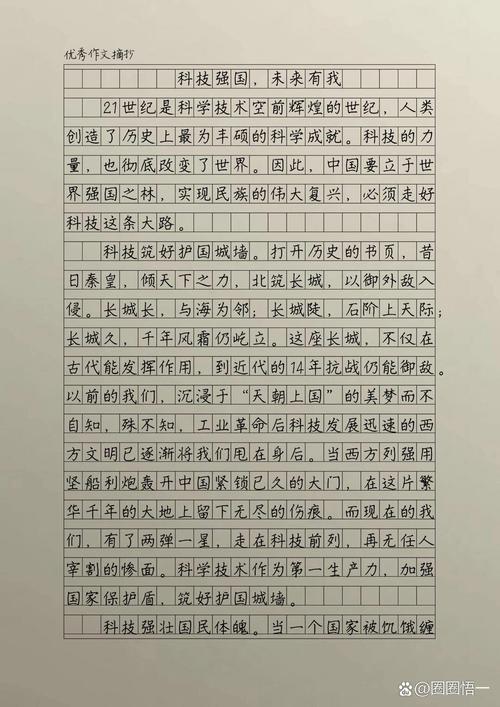 优秀作文摘抄
科技强国，未来有我
21世纪是科学技术空前辉煌的世纪，人类
创造了历史上最为丰硕的科学成就。科技的力
量，也彻底改变了世界。因此，中国要立于世
界强国之林，实现民族的伟大复兴，必须走好
科技这条大路。
科技筑好护国城墙。打开历史的书页，昔
日秦皇，倾天下之力，北筑长城，以御外敌入
侵。长城长，与海为邻；长城陡，石阶上天际；
长城久，千年风霜仍屹立。这座长城，不仅在
古代能发挥作用，到近代的14年抗战仍能御敌。
以前的我们，沉浸于“天朝上国”的美梦而不
自知，殊不知，工业革命后科技发展迅速的西
方文明已逐渐将我们甩在身后。当西方列强用
坚船利炮轰开中国紧锁已久的大门，在这片繁
华千年的大地上留下无尽的伤痕。而现在的我
们，有了两弹一星，走在科技前列，再无任人
宰割的惨面。科学技术作为第一生产力，加强
国家保护盾，筑好护国城墙。
科技强壮国民体魄。当一个国家被饥饿缠
圈圈悟一